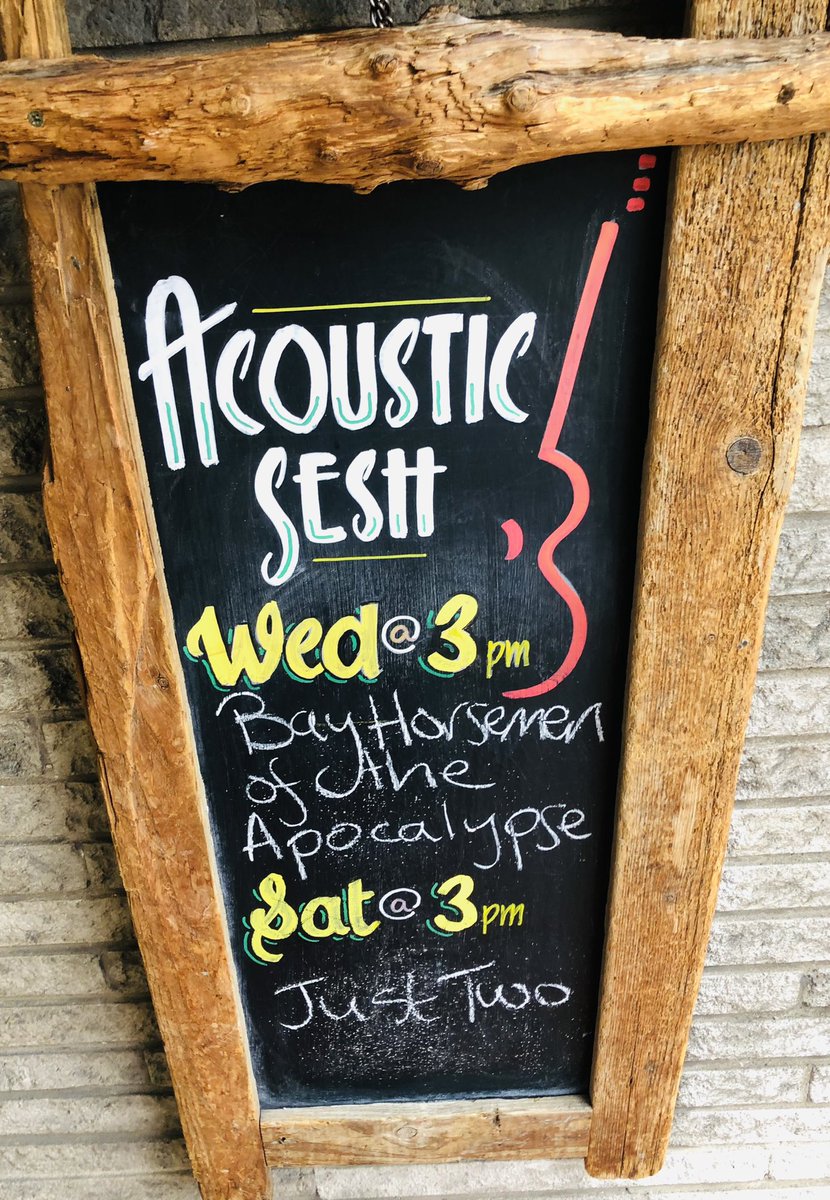 ACOUSTIC
SESH
Wed @ 3 pm
Bay Horsemen
of the
Apocalypse
Sat @ 3 pm
Just Two